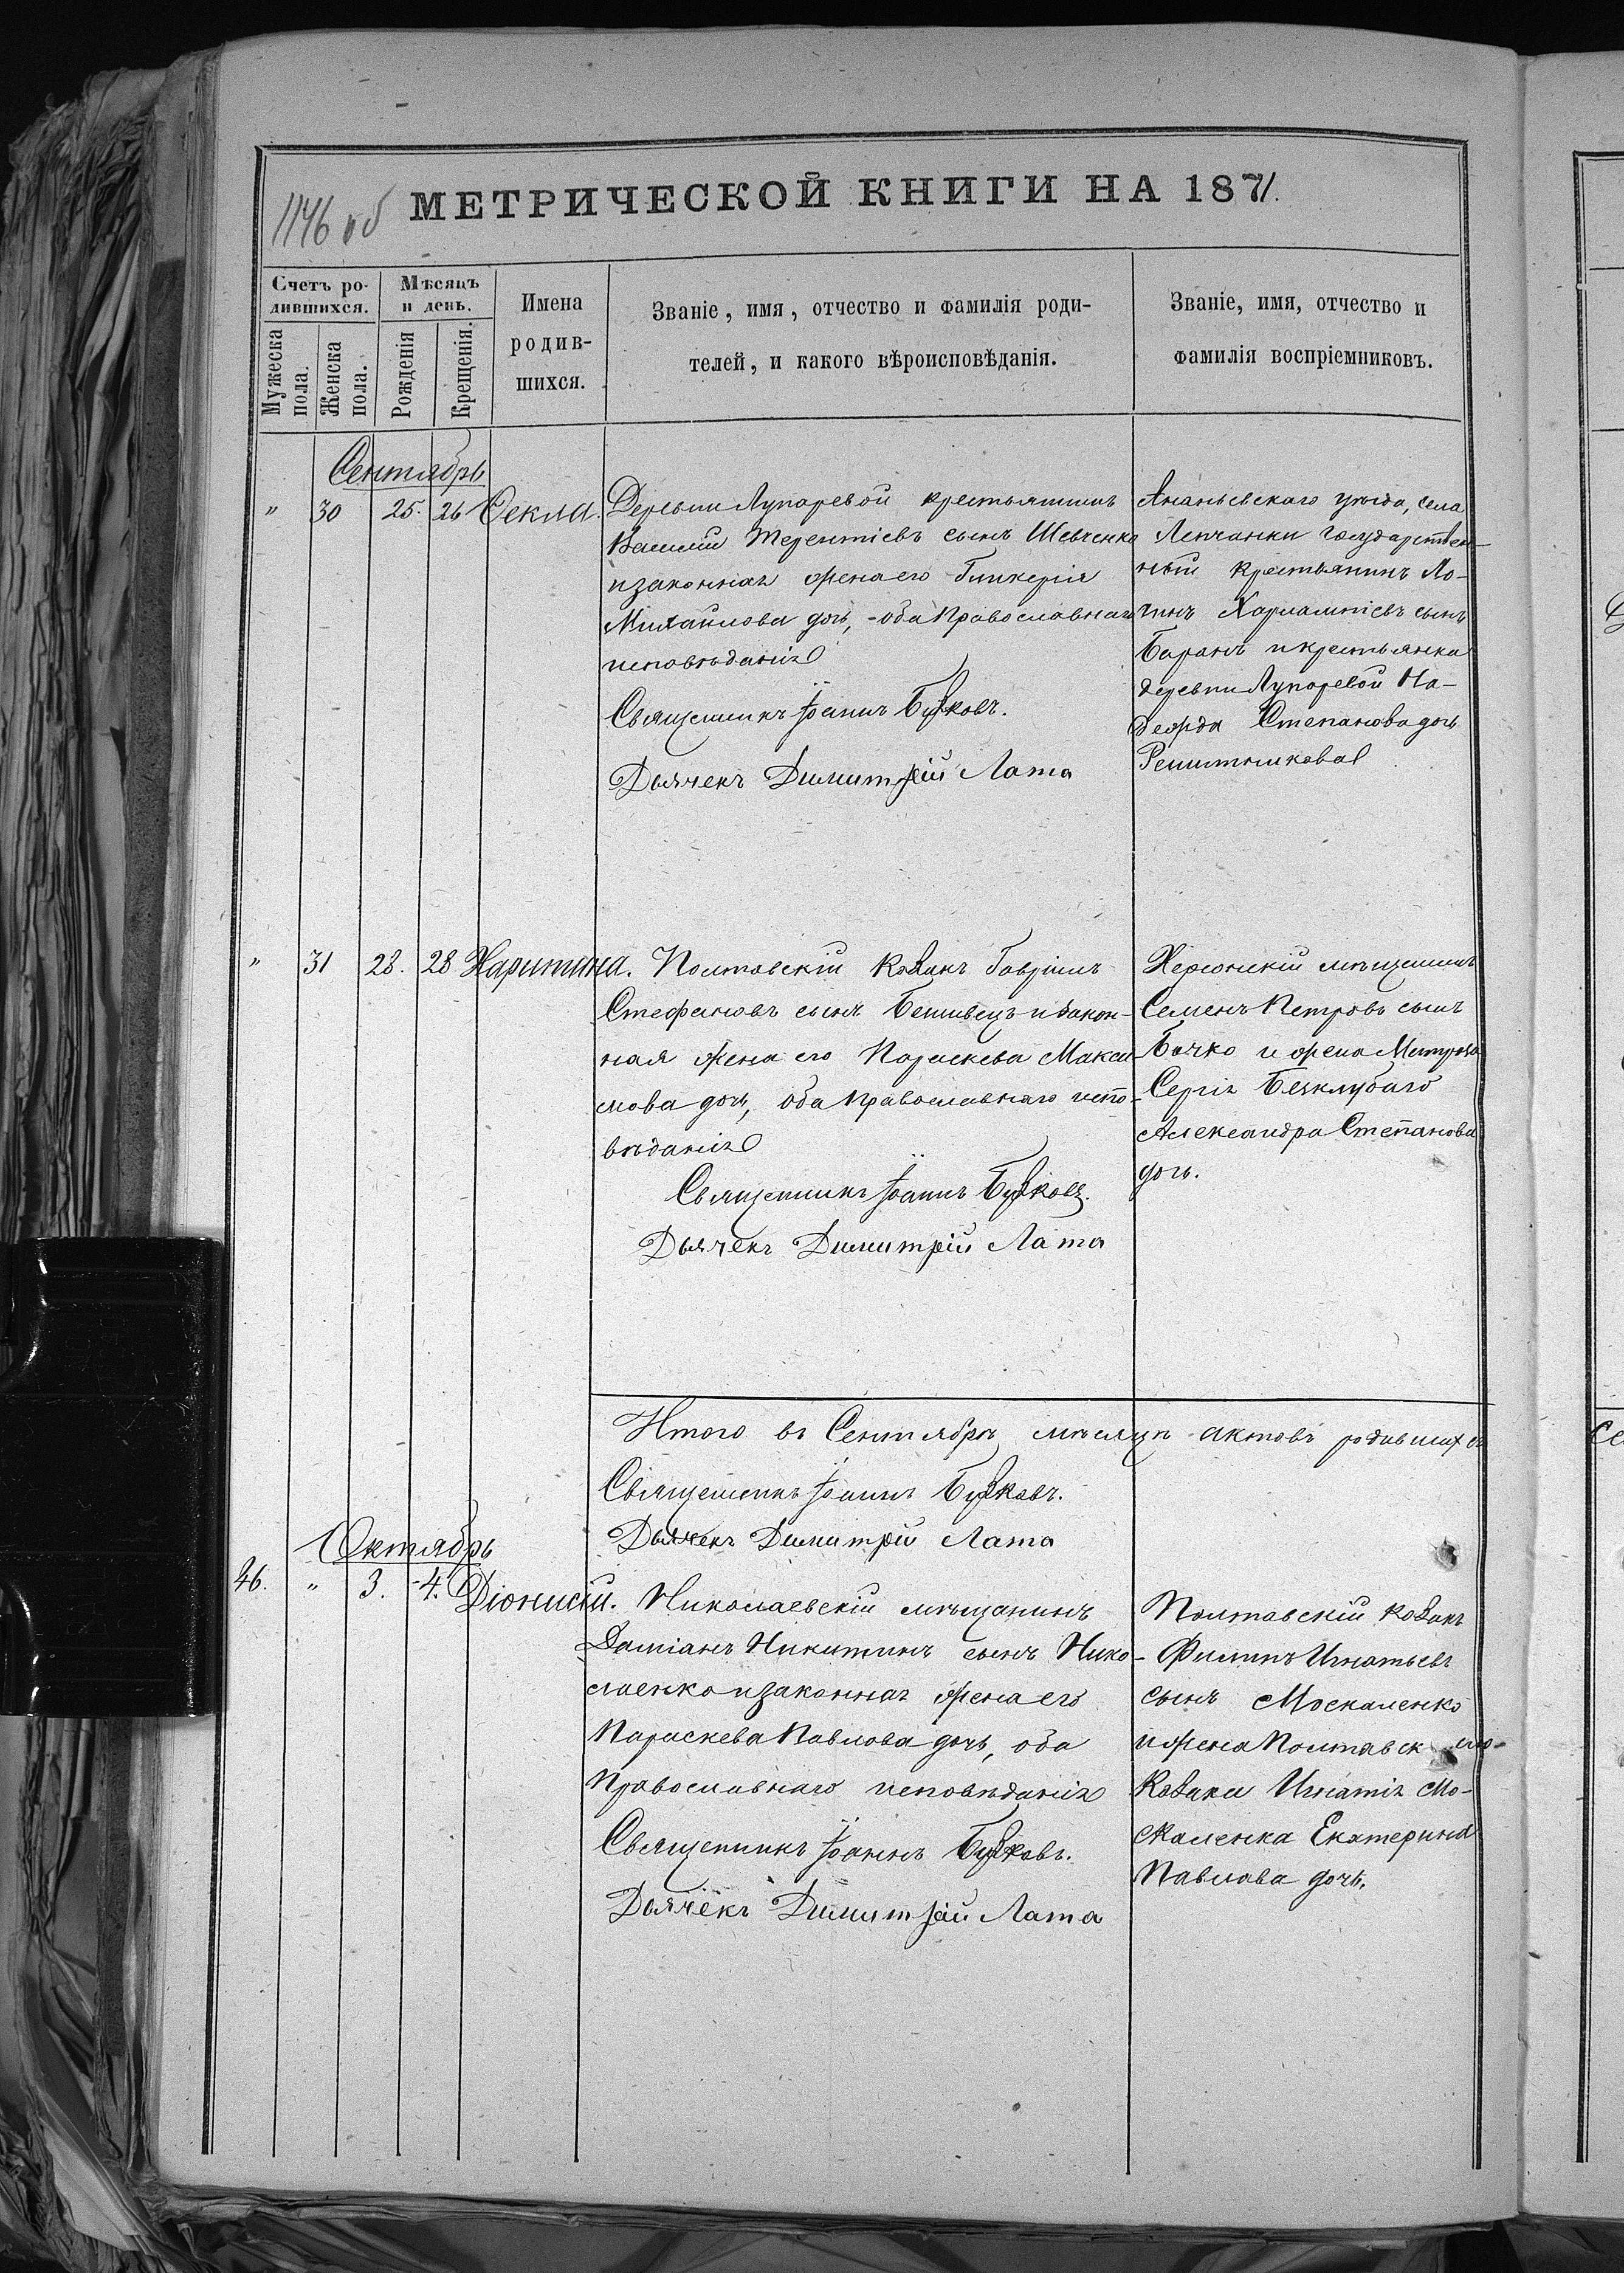 1146 об
МЕТРИЧЕСКОЙ КНИГИ НА 1871.
Счетъ ро-
дившихся.
Мужеска пола.
Женска пола.
Мѣсяцъ
и день.
Рожденія
Крещенія.
Имена
родив-
шихся.
Званіе, имя, отчество и фамилія роди-
телей, и какого вѣроисповѣданія.
Званіе, имя, отчество и
фамилія воспріемниковъ.
Сентябрь
" 30 25. 26 Ѳекла.
Деревни Лупаревой крестьянинъ
Василій Терентіевъ сынъ Шевченко
и законная жена его Гликерія
Михайлова дочь, - оба Православнаго
исповѣданія
Священникъ Іоаннъ Бузковъ.
Дьячекъ Димитрій Лата
Ананьевскаго уѣзда, села
государствен-
ный крестьянинъ Ло-
гинъ Харлампіевъ сынъ
Баранъ и крестьянка
деревни Лупаревой На-
дежда Степанова дочь
Решитникова
" 31 28. 28 Харитина.
Полтавскій козакъ Гавріилъ
Стефановъ сынъ и закон-
ная жена его Параскева Макси-
мова дочь, оба православнаго испо-
вѣданія
Священникъ Іоаннъ Бузковъ.
Дьячекъ Димитрій Лата
Херсонскій мѣщанинъ
Семенъ Петровъ сынъ
Бачко и жена
Сергія Безклубаго
Александра Степанова
дочь.
Итого въ Сентябрѣ мѣсяцѣ актовъ родившихся
Священникъ Іоаннъ Бузковъ.
Дьячекъ Димитрій Лата
Октябрь
46. " 3. 4. Діонисій.
Николаевскій мѣщанинъ
Даміанъ Никитинъ сынъ Нико-
лаенко и законная жена его
Параскева Павлова дочь, оба
Православнаго исповѣданія
Священникъ Іоаннъ Бузковъ.
Дьячекъ Димитрій Лата
Полтавскій козакъ
Филипъ Игнатьевъ
сынъ Москаленко
и жена Полтавск
козака Игнатія Мо-
скаленка Екатерина
Павлова дочь.